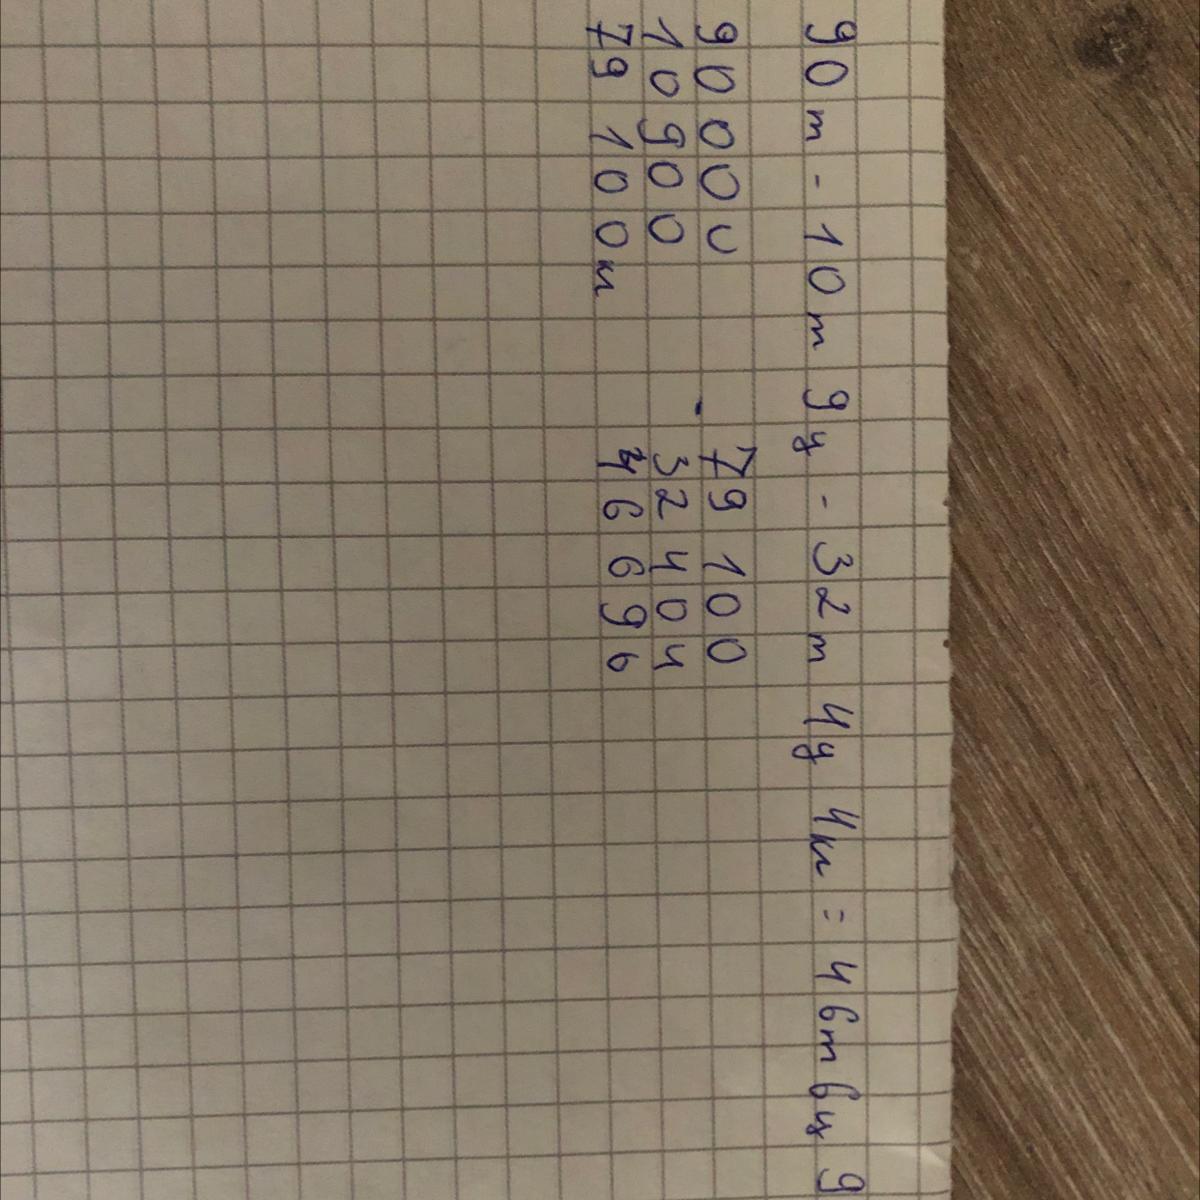 90т - 10т 9ц - 32т 4ц 4кг = 46т 6ц 9
90000
10900
79100кг
- 79100
32404
46696